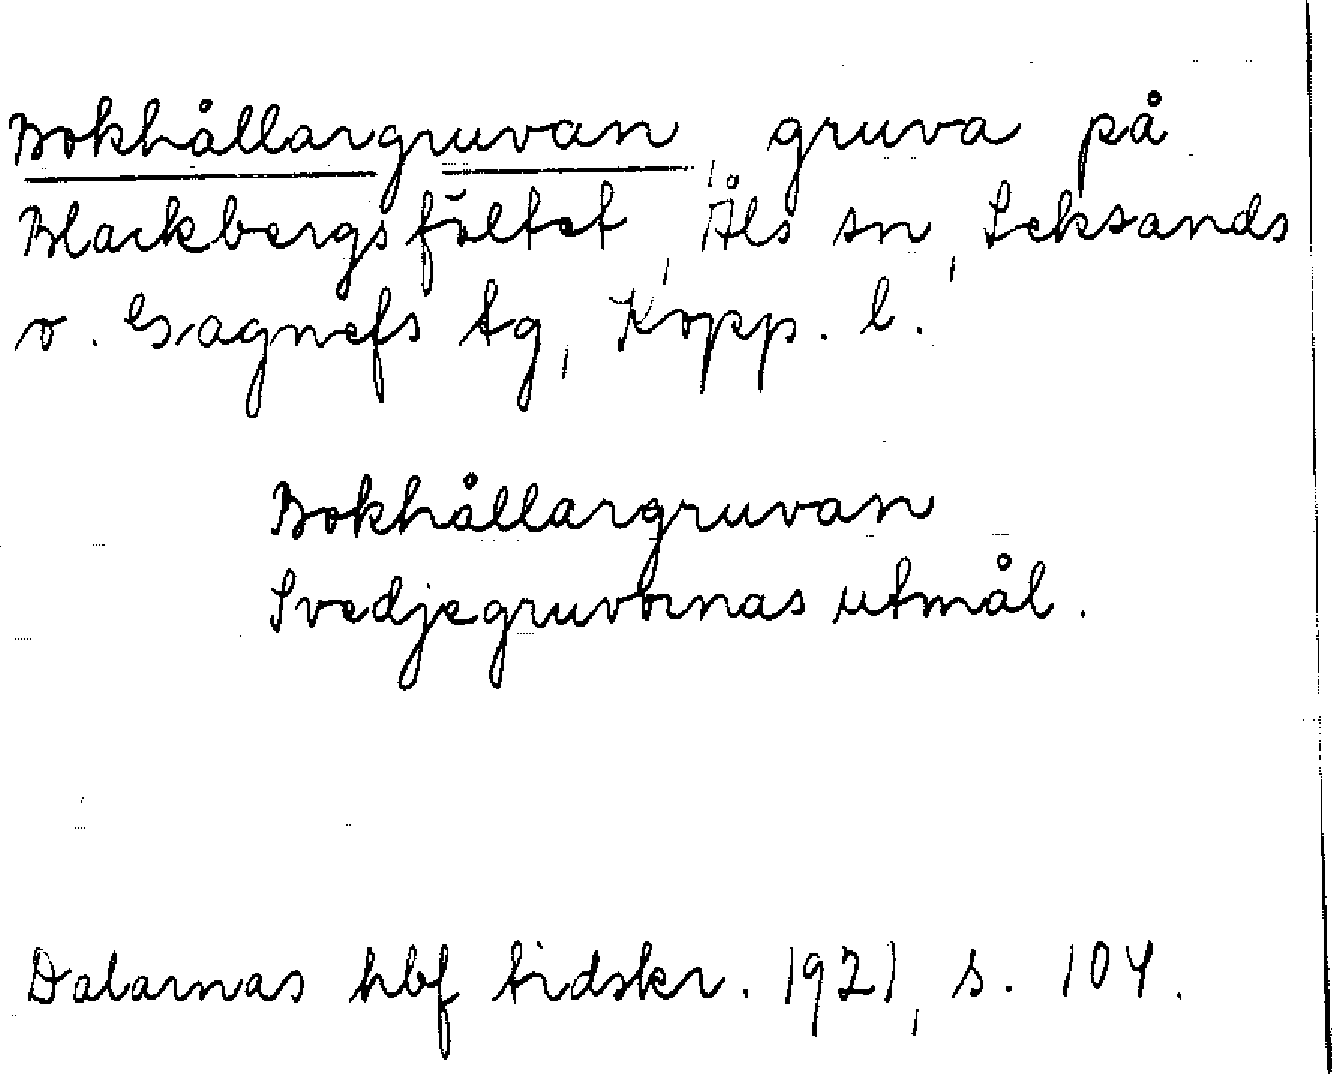 Bokhållargruvan, gruva på
Blackbergsfältet, Åls sn, Leksands
o. Gagnefs tg, Kopp. l.
Bokhållargruvan
Svedjegruvornas utmål.
Dalarnas hbf tidskr. 1921, s. 104.